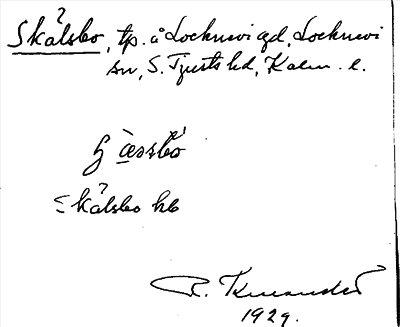 Skålsbo, tp. å Locknevi gd, Locknevi
sn, S. Tjusts hd, Kalm. l.
Skålsbo hb
R.
1929.